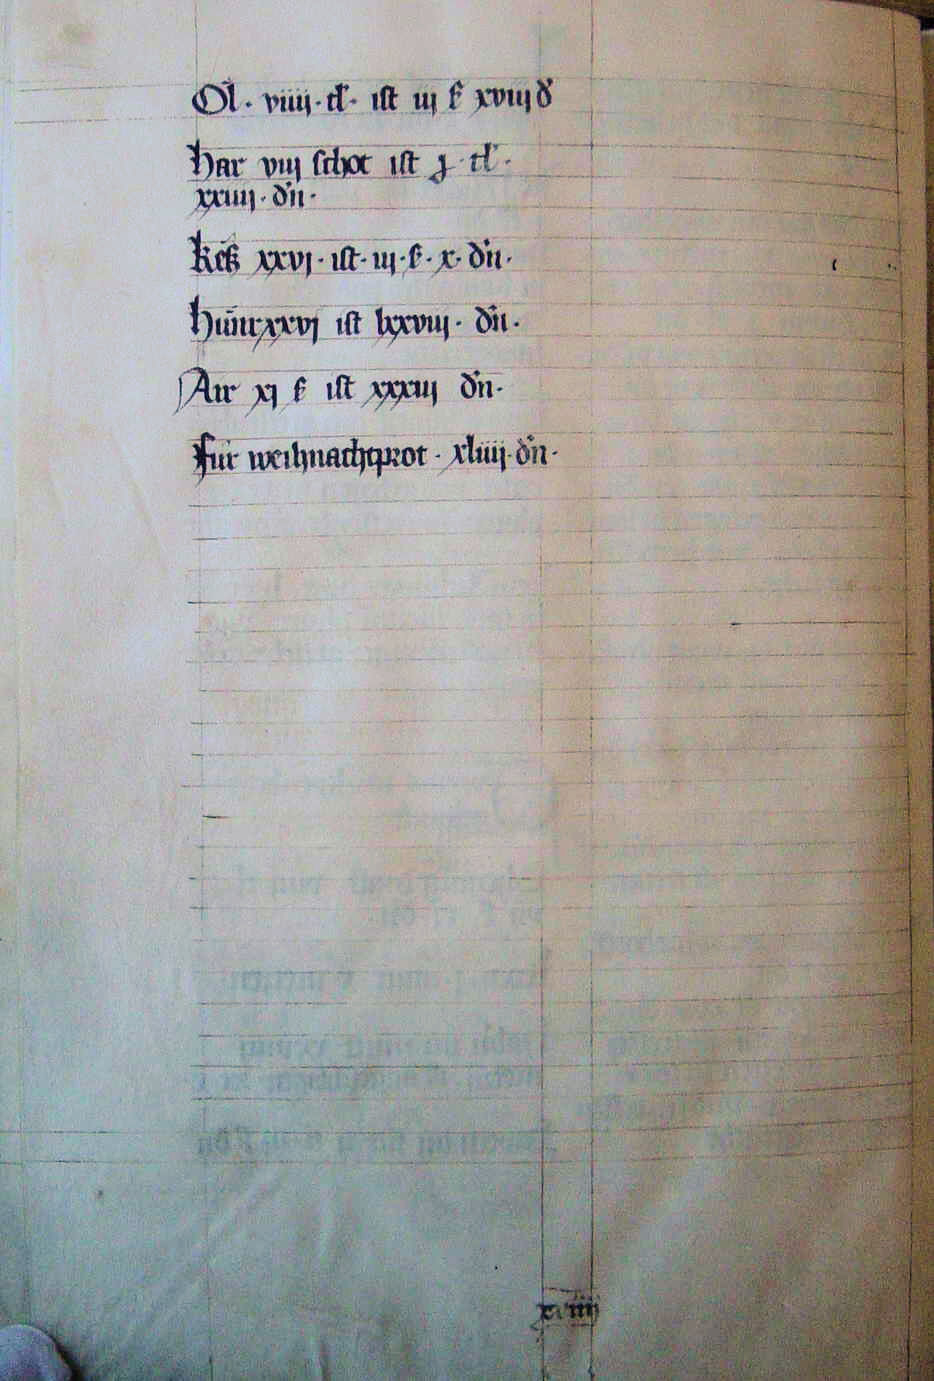 Ol · viiij · tl · ist iij ẞ xviij d
Har viij schot ist j · tl ·
xxiiij · dn ·
Kes xxvj · ist · iij · ß · x · dn ·
Hunr xxvj ist lxxviij · dn ·
Air xj ß ist xxxiij dn ·
fur weihnachtprot · xliiij · dn ·
xviiij